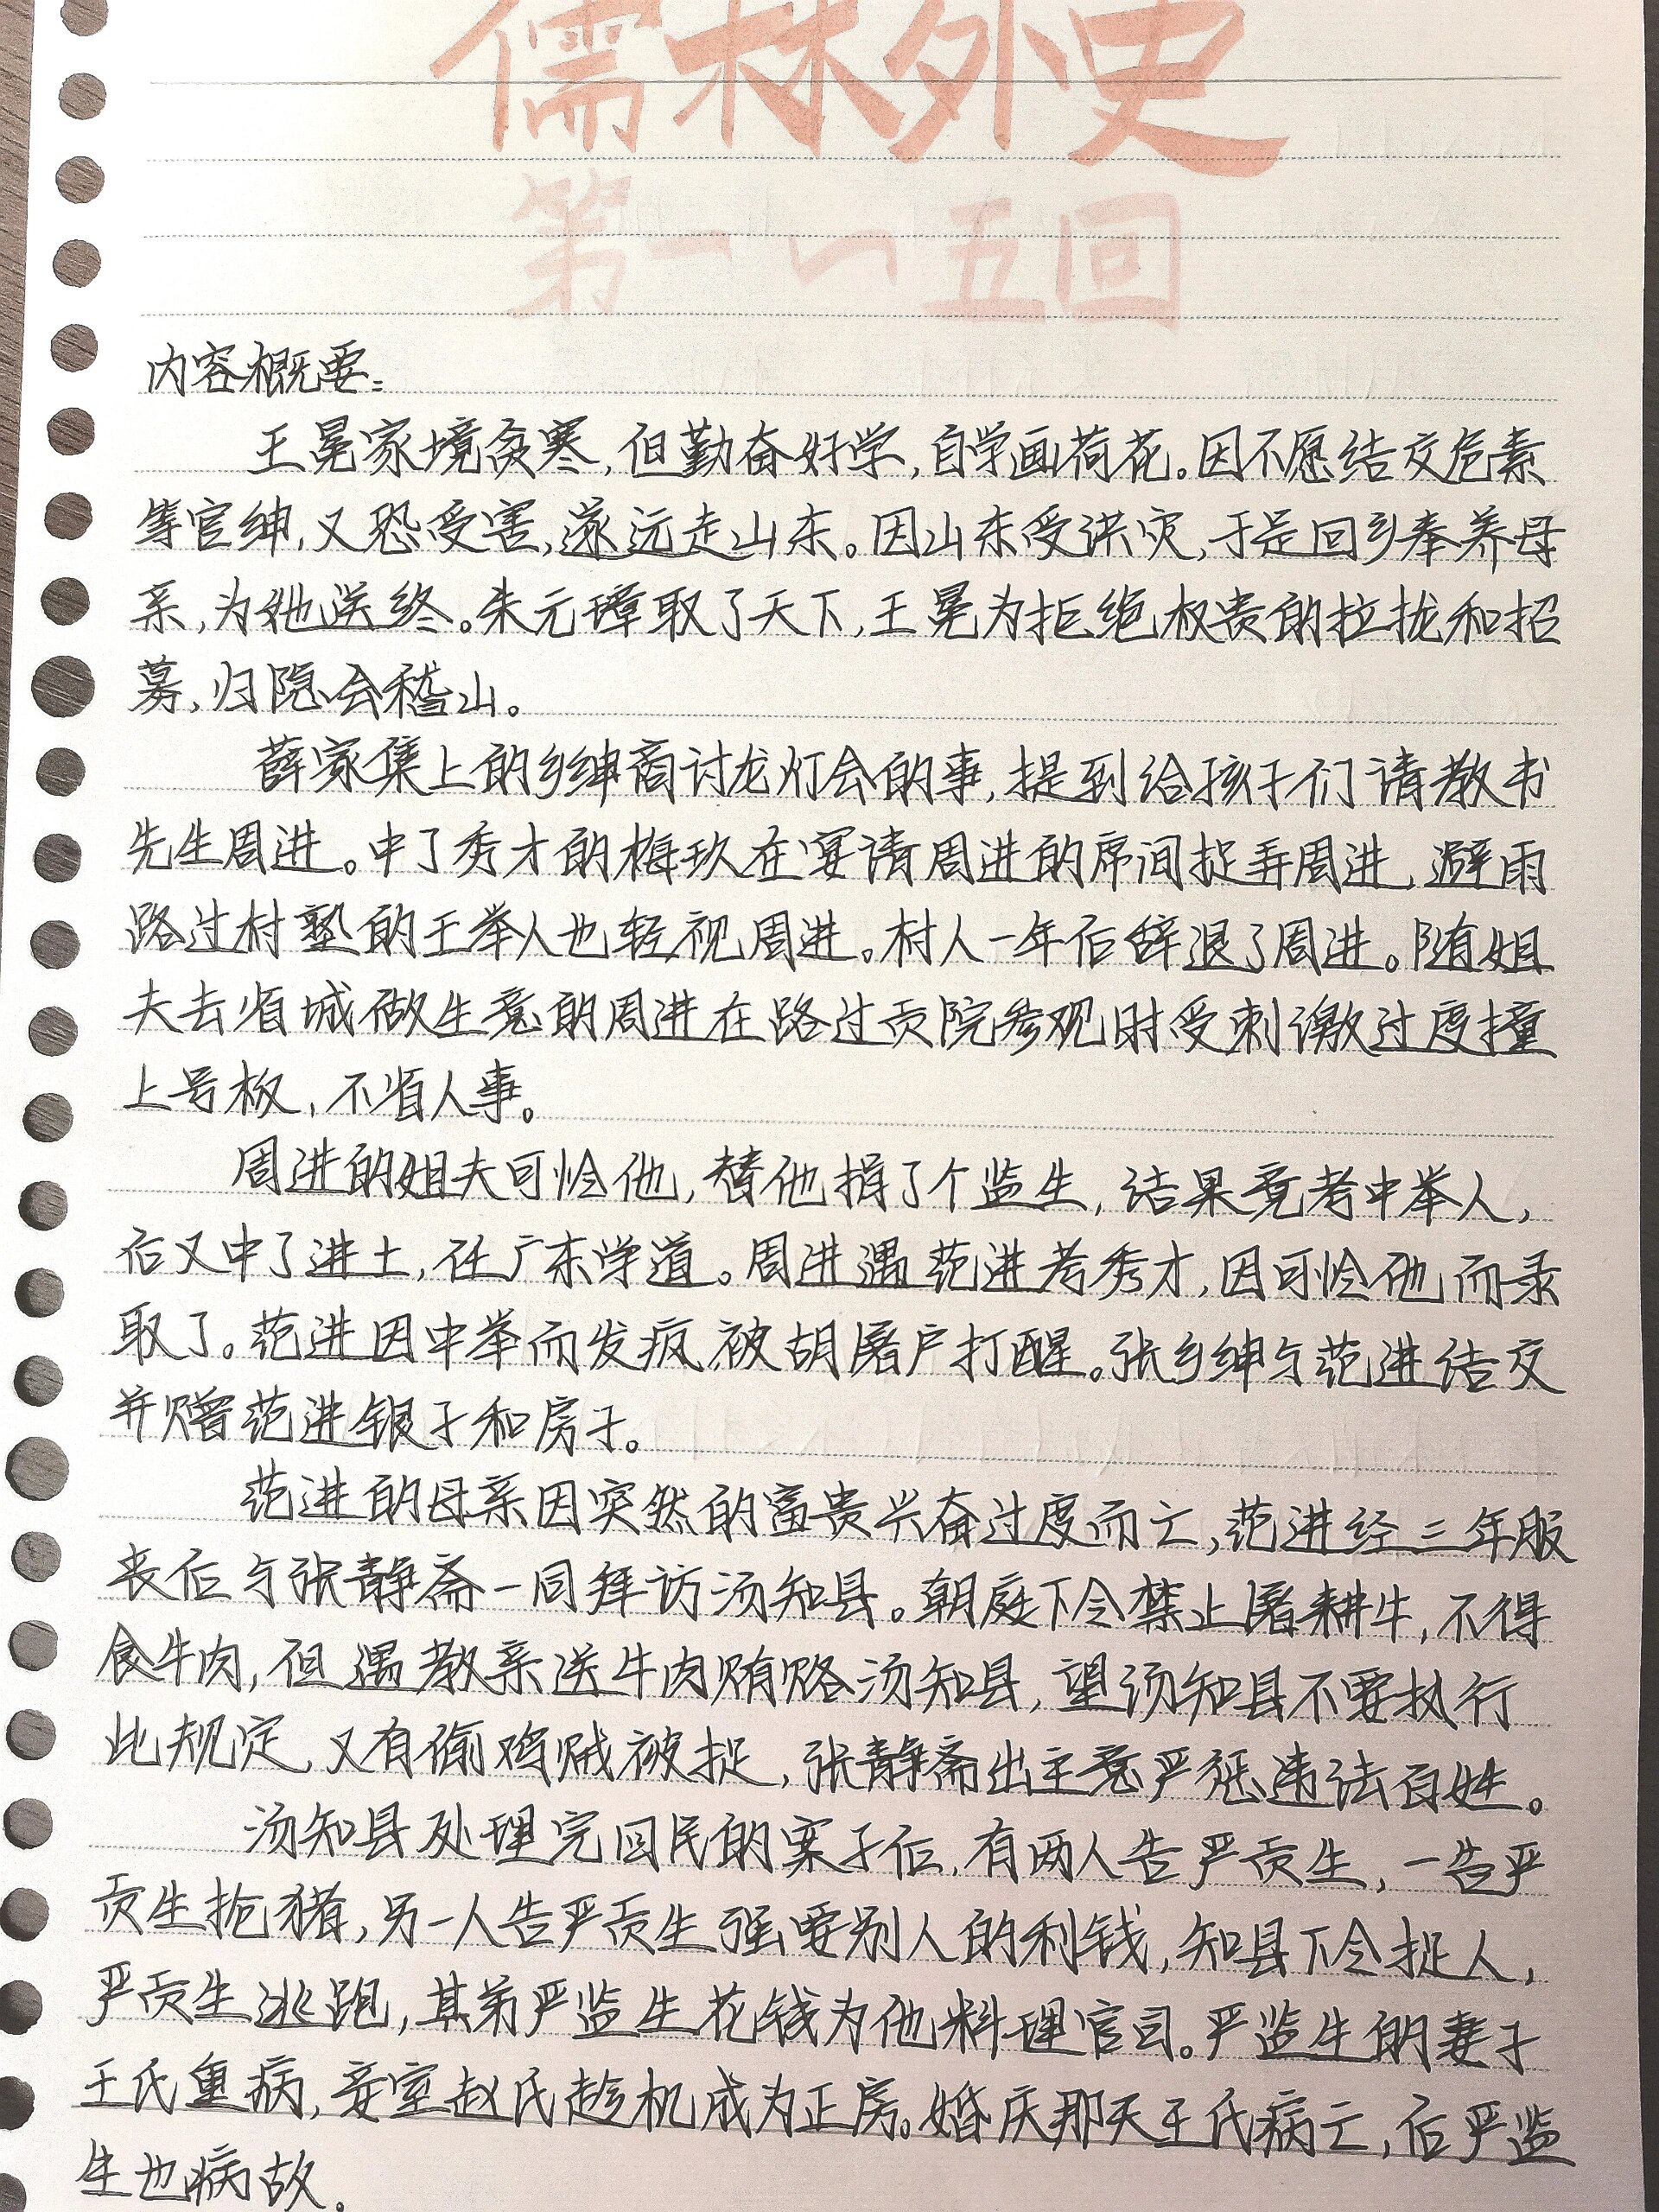 儒林外史
第一~五回
内容概要:
王冕家境贫寒,但勤奋好学,自学画荷花。因不愿结交危素
等官绅,又恐受害,遂远走山东。因山东受洪灾,于是回乡奉养母
亲,为她送终。朱元璋取了天下,王冕为拒绝权贵的拉拢和招
募,归隐会稽山。
薛家集上的乡绅商讨龙灯会的事,提到给孩子们请教书
先生周进。中了秀才的梅玖在宴请周进的席间捉弄周进,避雨
路过村塾的王举人也轻视周进。村人一年后辞退了周进。随姐
夫去省城做生意的周进在路过贡院参观时受刺激过度撞
上号板,不省人事。
周进的姐夫可怜他,替他捐了个监生,结果竟考中举人,
后又中了进士,任广东学道。周进遇范进考秀才,因可怜他而录
取了。范进因中举而发疯,被胡屠户打醒。张乡绅与范进结交
并赠范进银子和房子。
范进的母亲因突然的富贵兴奋过度而亡,范进经三年服
丧后与张静斋一同拜访汤知县。朝庭下令禁止屠耕牛,不得
食牛肉,但遇教亲送牛肉贿赂汤知县,望汤知县不要执行
此规定,又有偷鸡贼被捉,张静斋出主意严惩违法百姓。
汤知县处理完回民的案子后,有两人告严贡生,一告严
贡生抢猪,另一人告严贡生强要别人的利钱,知县下令捉人,
严贡生逃跑,其弟严监生花钱为他料理官司。严监生的妻子
王氏重病,妾室赵氏趁机成为正房。婚庆那天王氏病亡,后严监
生也病故.